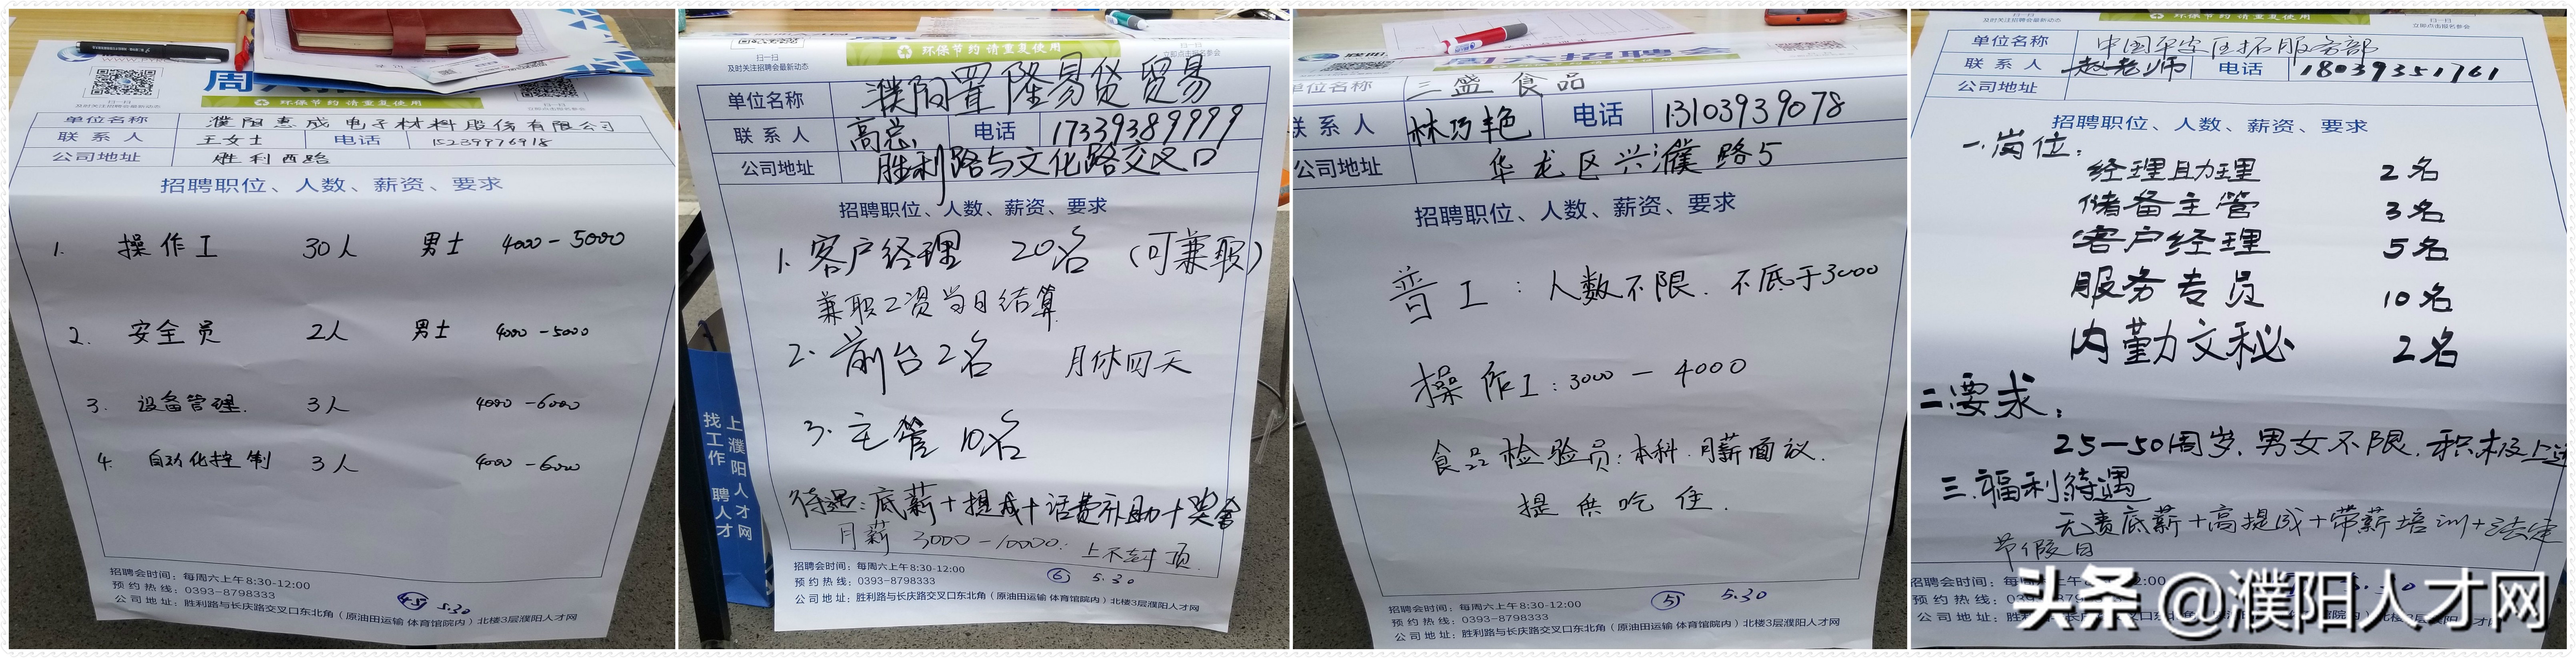 扫一扫
及时关注招聘会最新动态
周
环保节约 请重复使用
单位名称 濮阳惠成电子材料股份有限公司
联系人 王女士 电话 15239976918
公司地址 胜利西路
招聘职位、人数、薪资、要求
1. 操作工 30人 男士 4000-5000
2. 安全员 2人 男士 4000-5000
3. 设备管理. 3人 4000-6000
4. 自动化控制 3人 4000-6000
招聘会时间：每周六上午8:30-12:00
预约热线：0393-8798333
公司地址：胜利路与长庆路交叉口东北角（原油田运输 体育馆院内）北楼3层濮阳人才网
45 5.30
扫一扫
及时关注招聘会最新动态
环保节约 请重复使用
扫一扫
立即点击报名参会
单位名称 濮阳置隆易贷贸易
联系人 高总 电话 17339389999
公司地址 胜利路与文化路交叉口
招聘职位、人数、薪资、要求
1. 客户经理 20名 (可兼职)
兼职工资当日结算
2. 前台2名 月休四天
3. 主管 10名
待遇：底薪+提成+话费补助+奖金
月薪 3000-10000. 上不封顶.
招聘会时间：每周六上午8:30-12:00
预约热线：0393-8798333
公司地址：胜利路与长庆路交叉口东北角（原油田运输 体育馆院内）北楼3层濮阳人才网
6 5.30
上濮阳人才网
找工作 聘人才
周六招聘会
单位名称 三盛食品
联系人 林巧艳 电话 13103939078
公司地址 华龙区兴濮路5
招聘职位、人数、薪资、要求
普工：人数不限. 不底于3000
操作工：3000-4000
食品检验员：本科. 月薪面议.
提供吃住.
招聘会时间：每周六上午8:30-12:00
预约热线：0393-8798333
公司地址：胜利路与长庆路交叉口东北角（原油田运输 体育馆院内）北楼3层濮阳人才网
5 5.30
及时关注招聘会最新动态
环保节约 请重复使用
扫一扫
立即点击报名参会
单位名称 中国平安区拓服务部
联系人 赵老师 电话 18039351761
公司地址
招聘职位、人数、薪资、要求
一.岗位：
经理助理 2名
储备主管 3名
客户经理 5名
服务专员 10名
内勤文秘 2名
二.要求：
25-50周岁. 男女不限. 积极上进
三.福利待遇
无责底薪+高提成+带薪培训+法定
节假日
招聘会时间：每周六上午
预约热线：0393-8798333
公司地址：胜利路与长庆路
5.30
头条@濮阳人才网